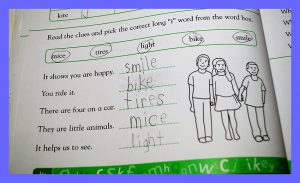 kite
Read the clues and pick the correct long "i" word from the word box.
mice tires light bike smile
It shows you are happy. smile
You ride it. bike
There are four on a car. tires
They are little animals. mice
It helps us to see. light